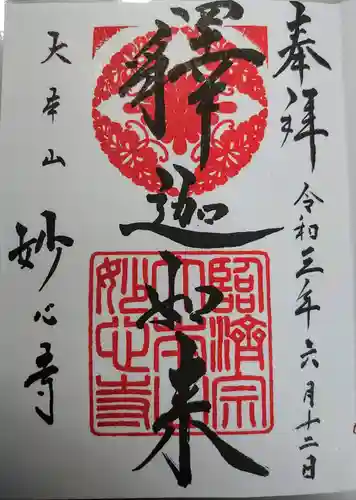 奉拝
令和三年六月十二日
釋迦如来
臨済宗
大本山
妙心寺
大本山
妙心寺